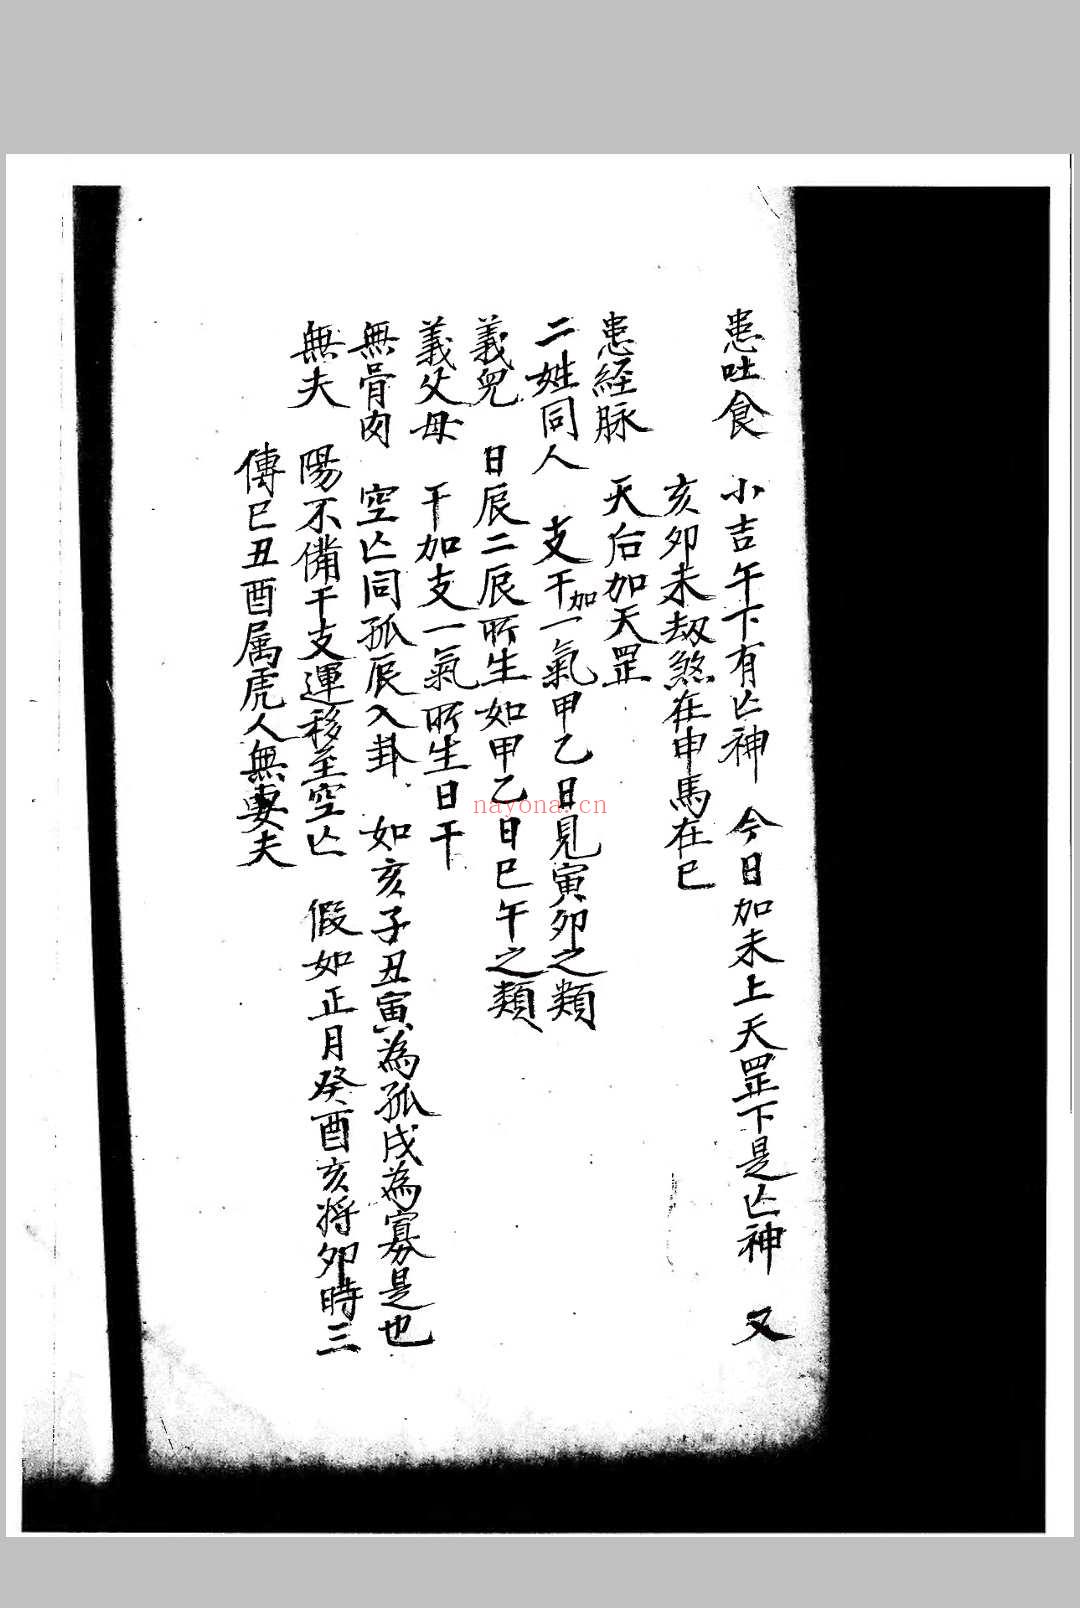 患吐食 小吉午下有亾神 今日加未上天罡下是亾神 又
亥卯未刼煞在申馬在巳
患経脉 天后加天罡
二姓同人 支干加一氣甲乙日見寅卯之類
義兒 日辰二辰所生如甲乙日巳午之類
義父母 干加支一氣所生日干
無骨肉 空亾同孤辰入卦 如亥子丑寅為孤戌為寡是也
無夫 陽不備干支運移至空亾 假如正月癸酉亥将卯時三
傳巳丑酉属虎人無妻夫
nayona.cn